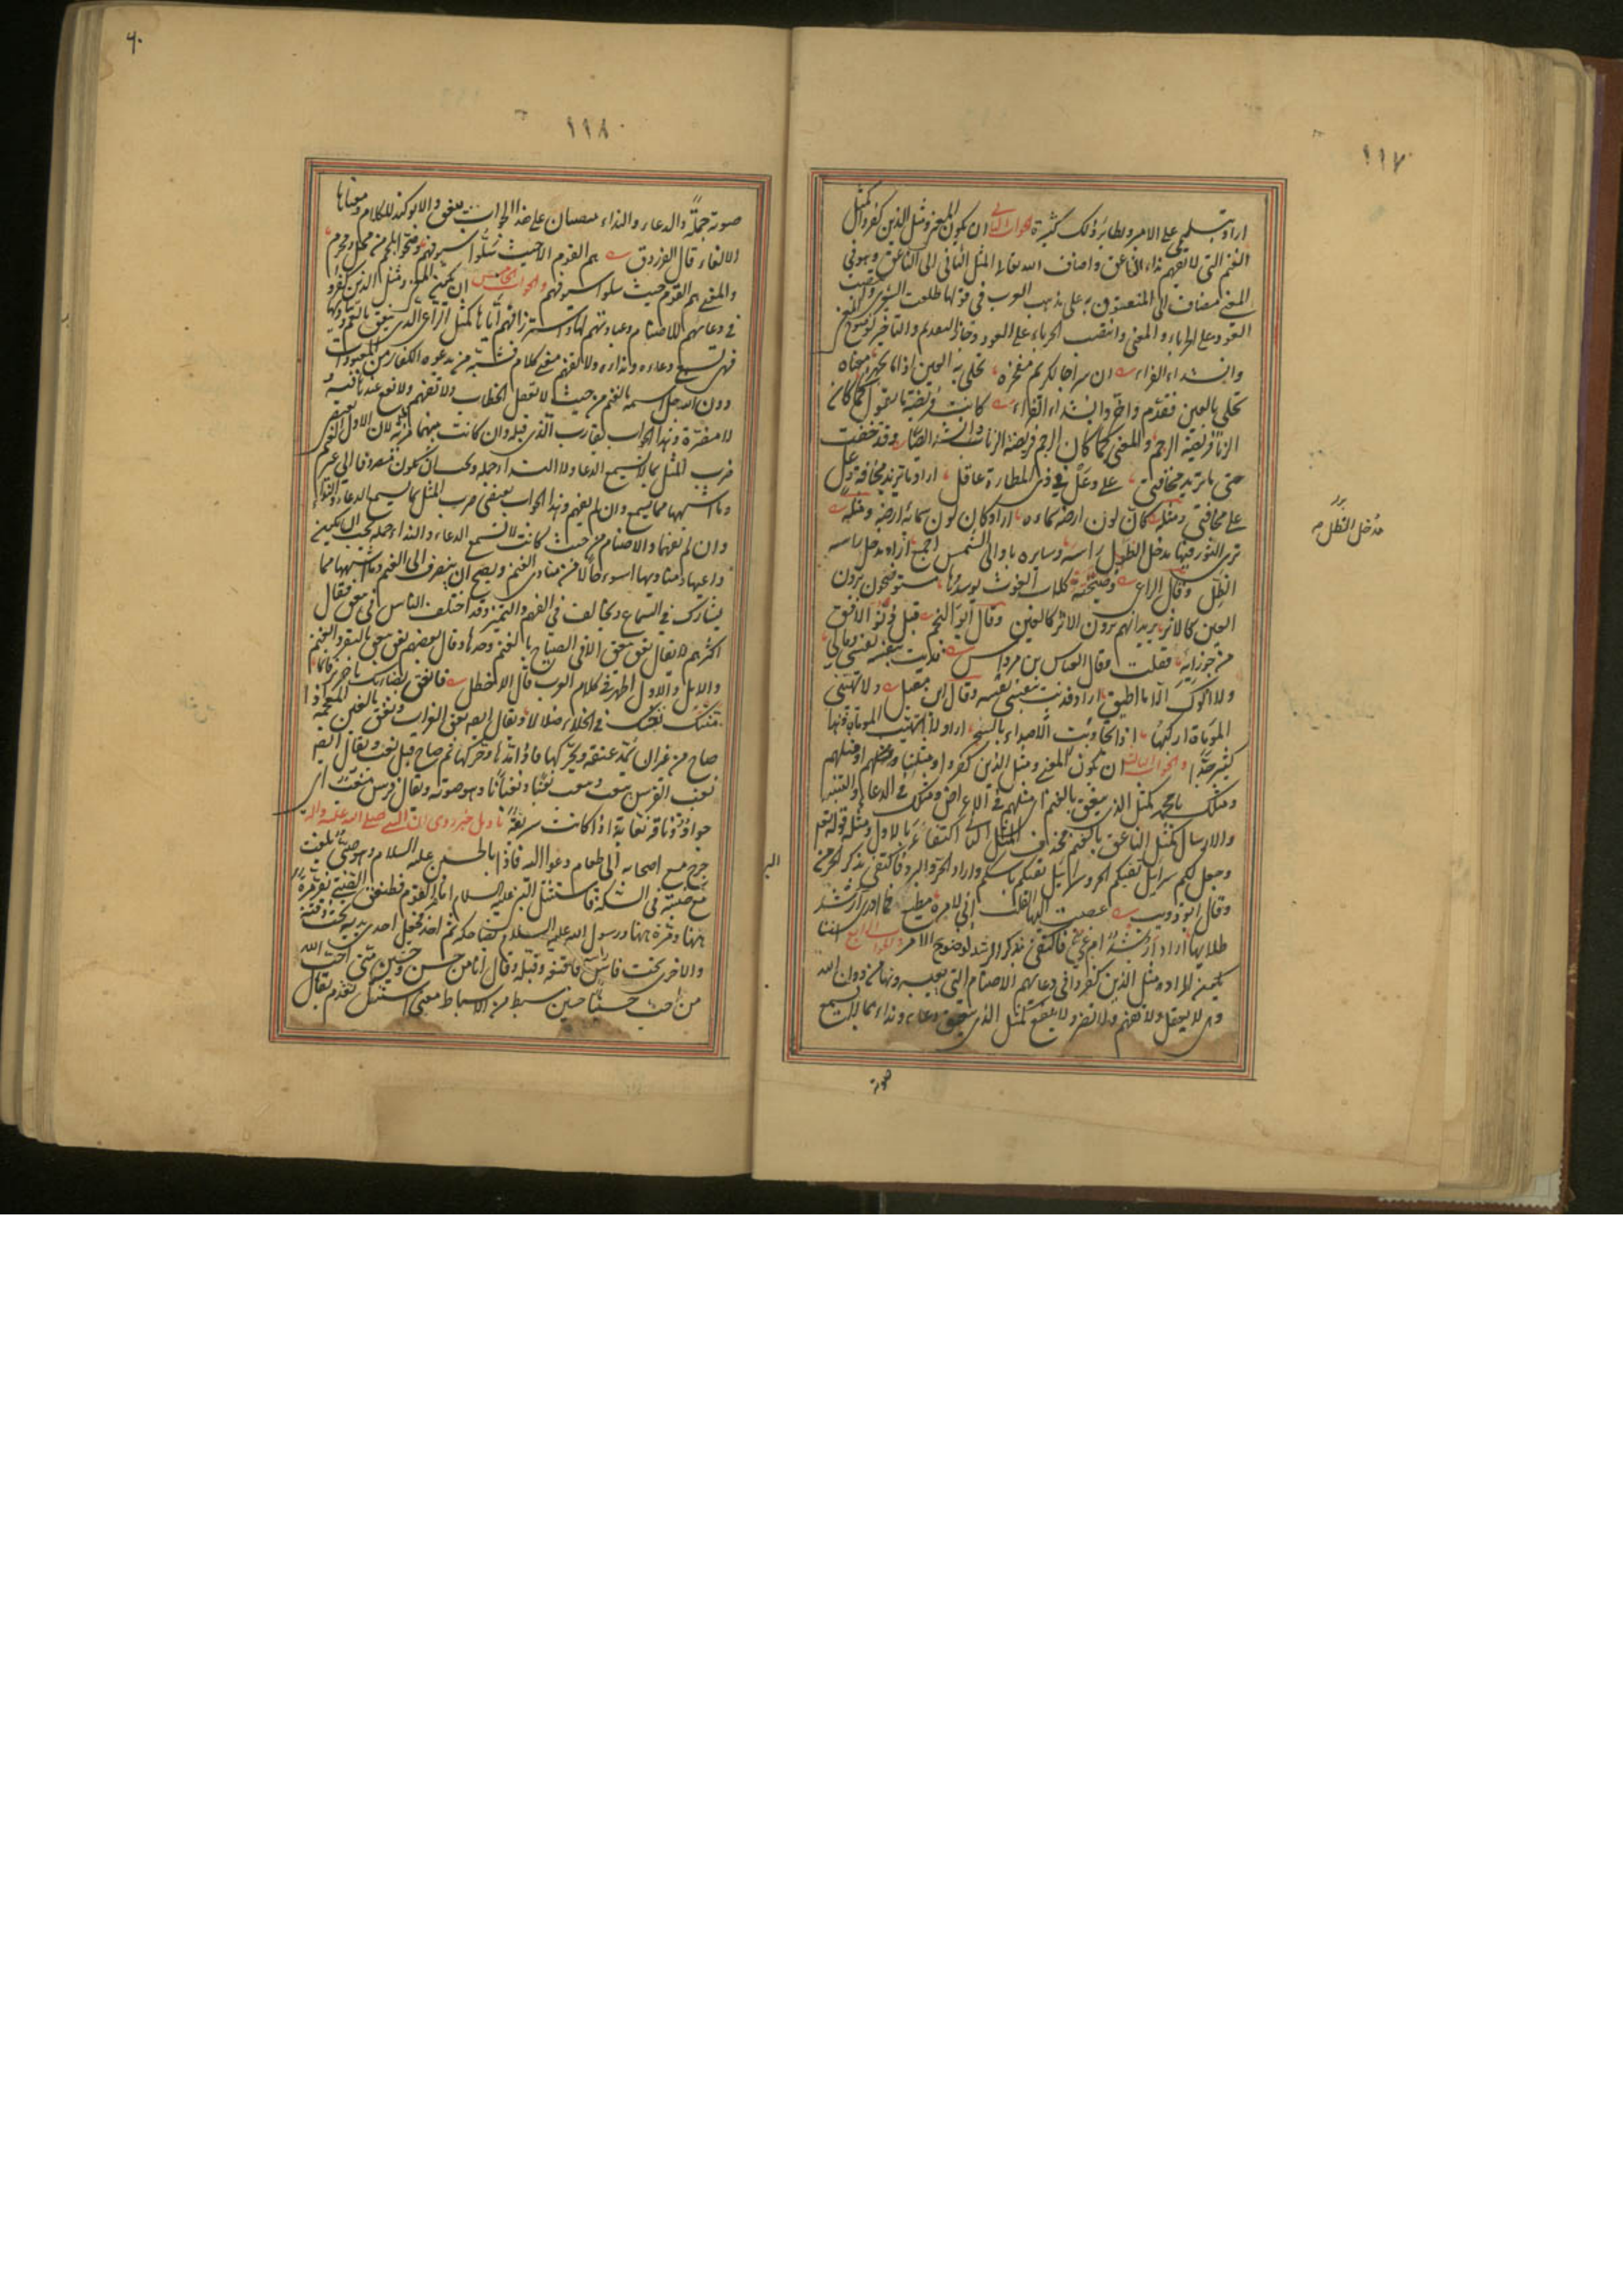 ١١٧
اراد بتسليمي على الامير ونظائر ذلك كثيرة والجواب الثاني ان يكون المعنى ومثل الذين كفروا كمثل
الغنم التي لا تفهم نداء الناعق واضاف الله تعالى المثل الثاني الى الناعق وهو في
المعنى مضاف الى المنعوق به على مذهب العرب في قولها طلعت الشعرى وانتصب
العود على الحرباء والمعنى وانتصب الحرباء على العود وجاز التقديم والتاخير لوضوح المعنى
وانشد الفراء ان سراجا لكريم مفخره تحلى به العين اذا ما تجهره معناه
تحلى بالعين فقدم واخر وانشد الفراء كانت فريضة ما تقول كما كان
الزنا فريضة الرجم والمعنى كما كان الرجم فريضة الزنا وانشد ايضا وقد خفت
حتى ما تزيد مخافتي على وعل في ذي المطارة عاقل اراد ما تزيد مخافة وعل
على مخافتي ومثله كان لون ارضه سماءه اراد كان لون سمائه ارضه ومثله
ترى الثور فيها مدخل الظل راسه وسايره باد الى الشمس اجمع اراد مدخل راسه
الظل وقال الراعي فصبحته كلاب الغوث يوسدها مستوضحون يرون
العين كالاثر يريد انهم يرون الاثر كالعين وقال ابو النجم قبل دنو الافق
من جوزائه فقلت وقال العباس بن مرداس فديت بنفسه نفسي ومالي
ولا آلوك الا ما اطيق اراد فديت بنفسي نفسه وقال ابن مقبل ولا تهيبني
الموماة اركبها اذا تجاوبت الاصداء بالسحر اراد ولا اتهيب الموماة وهذا
كثير جدا والجواب الثالث ان يكون المعنى ومثل الذين كفروا ومثلنا ومثلهم او مثلهم
ومثلك يا محمد كمثل الذي ينعق بالغنم اي مثلهم في الاعراض ومثلك في الدعاء والتنبيه
والارسال كمثل الناعق بالغنم فحذف المثل الثاني اكتفاء بالاول ومثله قوله تعالى
وجعل لكم سرابيل تقيكم الحر وسرابيل تقيكم باسكم واراد الحر والبرد فاكتفى بذكر الحر من
البرد
وقال ابو ذويب عصيت اليها القلب اني لامره مطيع فما ادري ارشد
طلابها اراد ارشد ام غي فاكتفى بذكر الرشد لوضوح الامر والجواب الرابع ان
يكون المراد ومثل الذين كفروا في دعائهم الاصنام التي يعبدونها من دون الله
وهي لا تعقل ولا تفهم ولا تضر ولا تنفع كمثل الذي ينعق دعاء ونداء بما لا يسمع
صوته
مدخل الظل
٦٠
١١٨
صوته جملة والدعاء والنداء ينتصبان على هذا الجواب بينعق والا توكيد للكلام ومعناها
الالغاء قال الفرزدق هم القوم الا حيث سلوا سيوفهم وضحوا بلحم من محل ومحرم
والمعنى هم القوم حيث سلوا سيوفهم والجواب الخامس ان يكون المعنى ومثل الذين كفروا
في دعائهم للاصنام وعبادتهم لها واسترزاقهم اياها كمثل الراعي الذي ينعق بالغنم ويناديها
فهي تسمع دعاءه ونداءه ولا تفهم معنى كلامه فشبه من يدعوه الكفار من المعبودات
دون الله جل اسمه بالغنم من حيث لا تعقل الخطاب ولا تفهم ولا نفع عندها فيه
ولا مضرة وهذا الجواب يقارب الذي قبله وان كانت بينهما مزية لان الاول يقتضي
ضرب المثل بما لا يسمع الدعاء ولا النداء جملة ويجب ان يكون مصروفا الى غير الغنم
وما اشبهها مما يسمع وان لم يفهم وهذا الجواب يقتضي ضرب المثل بما يسمع الدعاء والنداء
وان لم يفهما والاصنام من حيث كانت لا تسمع الدعاء والنداء جملة يجب ان يكون
داعيها ومناديها اسوء حالا من منادي الغنم ويصح ان يصرف الى الغنم وما اشبهها مما
يشارك في السماع ويخالف في الفهم والتمييز وقد اختلف الناس في ينعق فقال
اكثرهم لا يقال نعق ينعق الا في الصياح بالغنم وحدها وقال بعضهم نعق ينعق بالبقر والغنم
والابل والاول اظهر في كلام العرب قال الاخطل فانعق بضانك يا جرير فانما
منتك نفسك في الخلاء ضلالا ويقال ايضا نعق الغراب ونغق بالغين المعجمة اذا
صاح من غير ان يمد عنقه ويحركها فاذا مدها وحركها ثم صاح قيل نعب ويقال ايضا
نعب الفرس ينعب وينعب نعبا ونعبانا وهو صوته ويقال فرس منعب اي
جواد وناقة نعابة اذا كانت سريعة تاويل خبر روي ان النبي صلى الله عليه واله
خرج مع اصحابه الى طعام دعوا اليه فاذا بالحسين عليه السلام وهو صبي يلعب
مع صبية في السكة فاستنتل النبي عليه السلام امام القوم فطفق الصبي يفر مرة
ههنا ومرة ههنا ورسول الله عليه السلام يضاحكه ثم اخذه فجعل احدى يديه تحت ذقنه
والاخرى تحت فاس راسه فاقنعه وقبله وقال انا من حسين وحسين مني احب الله
من احب حسينا حسين سبط من الاسباط معنى استنتل تقدم يقال